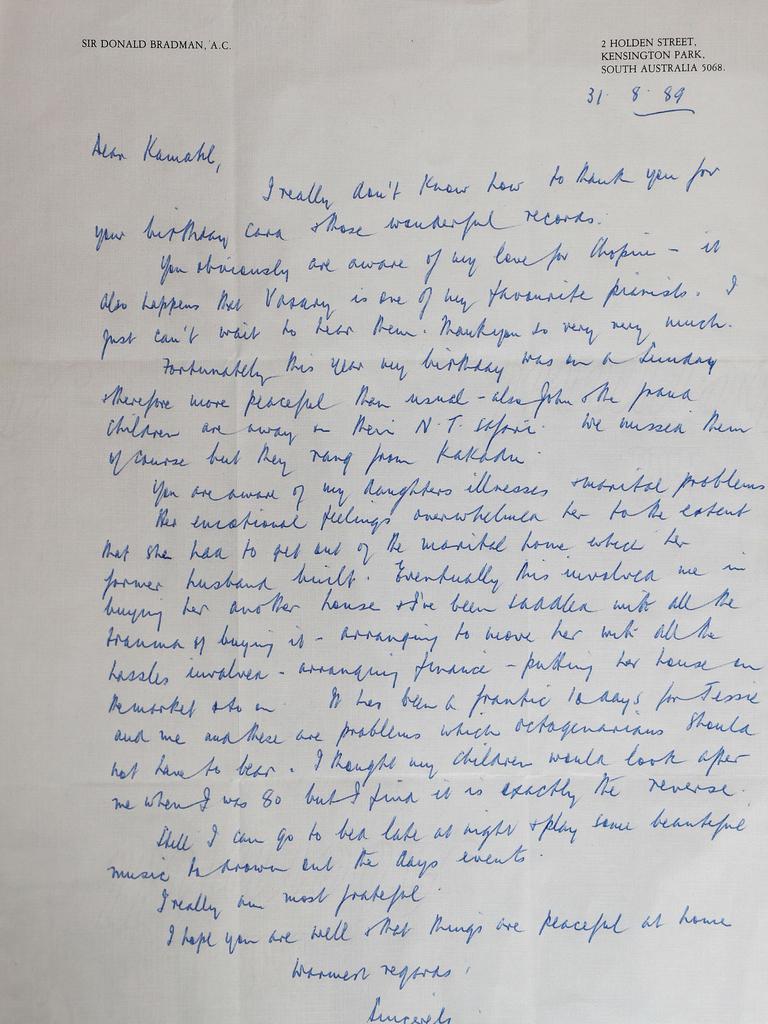 SIR DONALD BRADMAN, A.C.
2 HOLDEN STREET,
KENSINGTON PARK,
SOUTH AUSTRALIA 5068.
31. 8. 89
Dear Kamahl,
I really don't know how to thank you for
your birthday card & those wonderful records.
You obviously are aware of my love for Chopin – it
also happens that Vasary is one of my favourite pianists. I
just can't wait to hear them. Thankyou so very very much.
Fortunately this year my birthday was on a Sunday
& therefore more peaceful than usual – also John & the grand
children are away on their N.T. safari. We missed them
of course but they rang from Kakadu.
You are aware of my daughters illnesses & marital problems
Her emotional feelings overwhelmed her to the extent
that she had to get out of the marital home which her
former husband built. Eventually this involved me in
buying her another house & I've been saddled with all the
trauma of buying it – arranging to move her with all the
hassles involved – arranging finance – putting her house on
the market & so on. It has been a frantic 10 days for Jessie
and me and these are problems which octogenarians should
not have to bear. I thought my children would look after
me when I was 80 but I find it is exactly the reverse.
Still I can go to bed late at night & play some beautiful
music to drown out the days events.
I really am most grateful.
I hope you are well & that things are peaceful at home
Warmest regards.
Sincerely